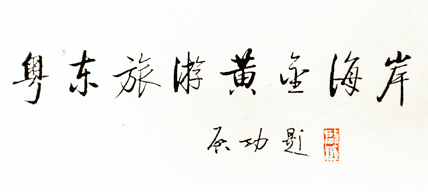 粤东旅游黄金海岸
启功题